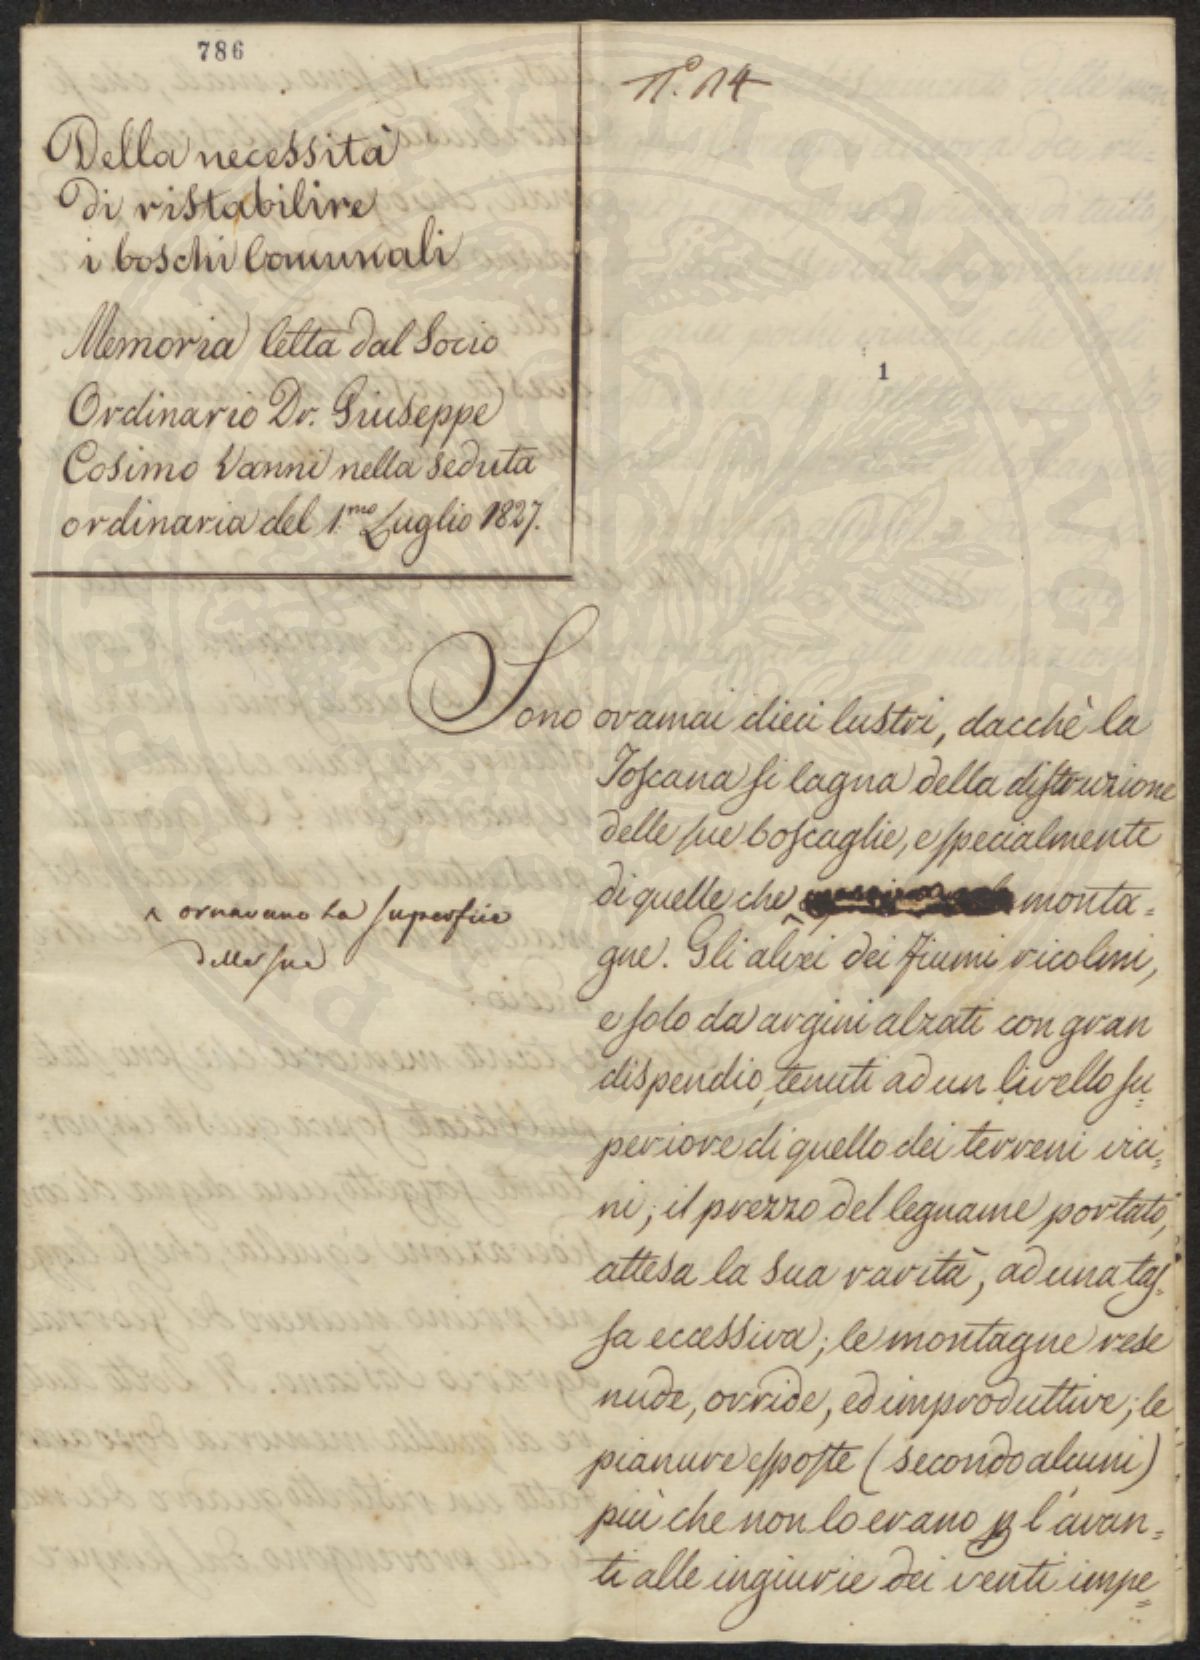 786
N.° 14
Della necessità
di ristabilire
i boschi Comunali
Memoria letta dal Socio
Ordinario Dr. Giuseppe
Cosimo Vanni nella seduta
ordinaria del 1.mo Luglio 1827.
1
Sono oramai dieci lustri, dacchè la
Toscana si lagna della distruzione
delle sue boscaglie, e specialmente
di quelle che monta=
^ ornavano la superficie
delle sue
gne. Gli alvei dei fiumi ricolmi,
e solo da argini alzati con gran
dispendio, tenuti ad un livello su=
periore di quello dei terreni vici=
ni; il prezzo del legname portato,
attesa la sua rarità, ad una tas=
sa eccessiva; le montagne rese
nude, orride, ed improduttive; le
pianure esposte (secondo alcuni)
più che non lo erano p l'avan=
ti alle ingiurie dei venti impe=